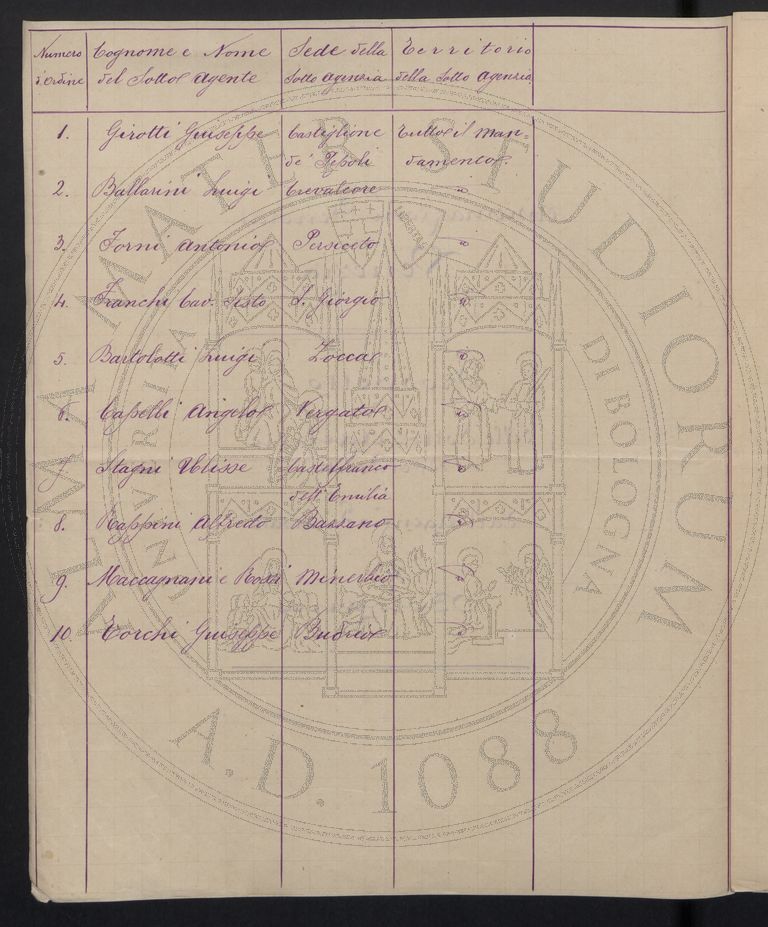 Numero Cognome e Nome Sede della Territorio
d'ordine del Sotto Agente Sotto Agenzia della Sotto Agenzia
1. Girotti Giuseppe Castiglione Tutto il Man=
de' Pepoli damento.
2. Ballarini Luigi Crevalcore "
3. Forni Antonio Persiceto "
4. Franchi Cav. Sisto S. Giorgio "
5. Bartolotti Luigi Zocca "
6. Caselli Angelo Vergato "
7. Stagni Ulisse Castelfranco "
dell'Emilia
8. Rappini Alfredo Bazzano "
9. Maccagnani e Rossi Minerbio "
10 Torchi Giuseppe Budrio "
ALMA MATER STUDIORUM
UNIVERSITÀ DI BOLOGNA
A.D. 1088